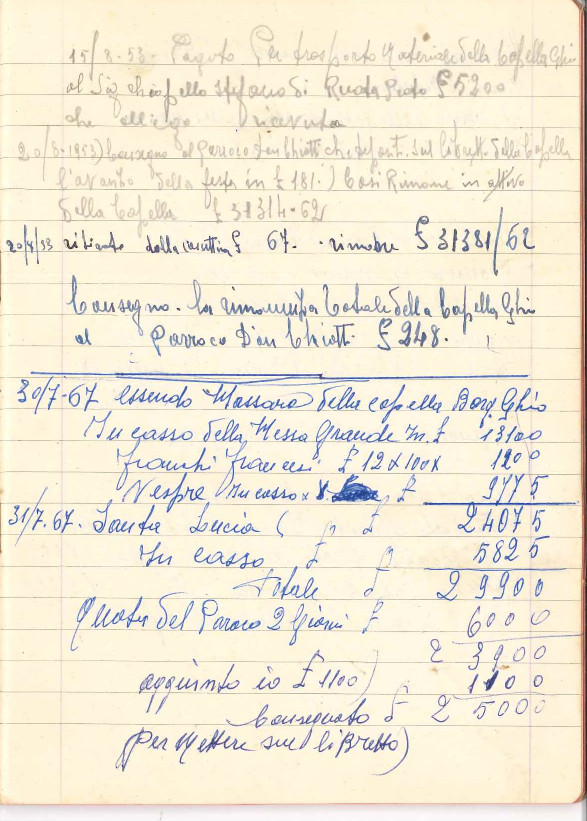 15/8-53- Pagato Per trasporto Materiale della Capella Ghio
al Sig Chiapello Stefano di Ruata Prato £ 5200
che allego ricevuta
20/8-1953) Consegno al Parroco Don Chiotti che deposit. sul libretto della Capella
l'avanzo della festa in £ 181.) Così Rimane in attivo
della Capella £ 31314-62
20/8/53 ritirate dalla cassettina £ 67. rimane £ 31381/62
Consegno. la rimanenza totale della Capella Ghio
al Parroco Don Chiotti £ 248.
30/7-67 essendo Massaro della capella Borg. Ghio
Incasso della Messa Grande In. £ 13100
franchi francesi £ 12 x 100 x 1200
Vespre Incasso x £ 9775
31/7.67. Santa Lucia ( £ 24075
In casso £ 5825
Totale £ 29900
Quota del Paroco 2 Giorni £ 6000
23900
aggiunto io £ 1100) 1100
Consegnato £ 25000
(per Mettere sul libretto)